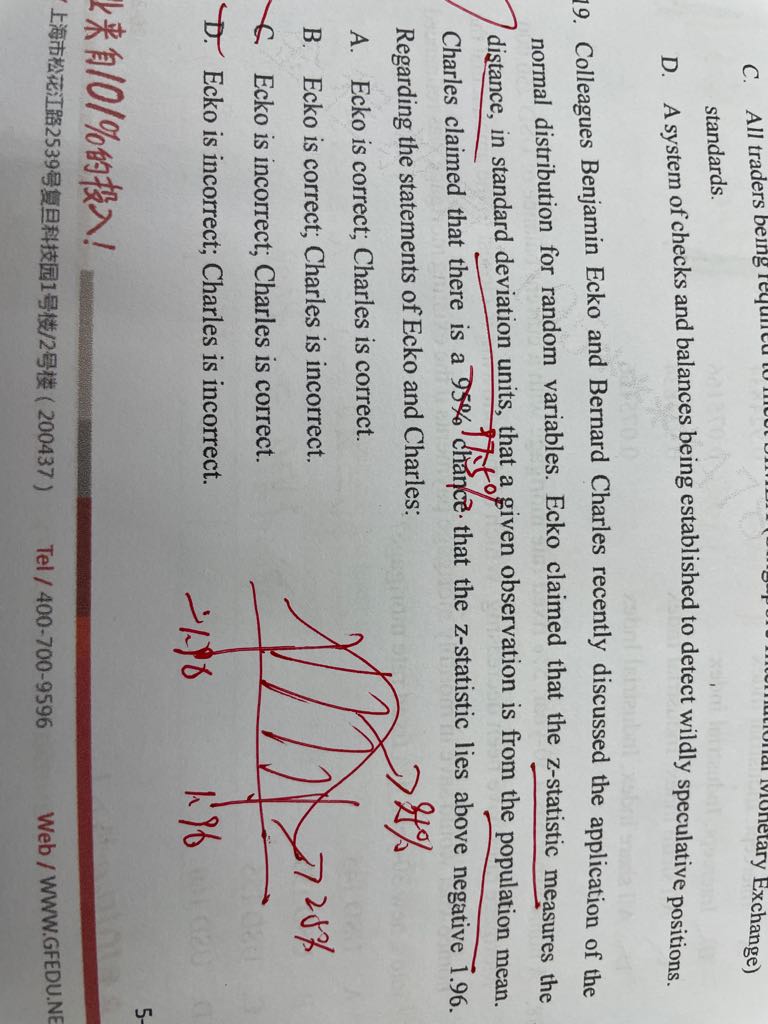 C. All traders being required to meet
International Monetary Exchange)
standards.
D. A system of checks and balances being established to detect wildly speculative positions.
19. Colleagues Benjamin Ecko and Bernard Charles recently discussed the application of the
normal distribution for random variables. Ecko claimed that the z-statistic measures the
distance, in standard deviation units, that a given observation is from the population mean.
97.5%
Charles claimed that there is a 95% chance that the z-statistic lies above negative 1.96.
Regarding the statements of Ecko and Charles:
A. Ecko is correct; Charles is correct.
B. Ecko is correct; Charles is incorrect.
C. Ecko is incorrect; Charles is correct.
D. Ecko is incorrect; Charles is incorrect.
95%
-1.96
1.96
来自101%的投入!
上海市松花江路2539号复旦科技园1号楼/2号楼(200437) Tel / 400-700-9596 Web / WWW.GFEDU.NE
5-